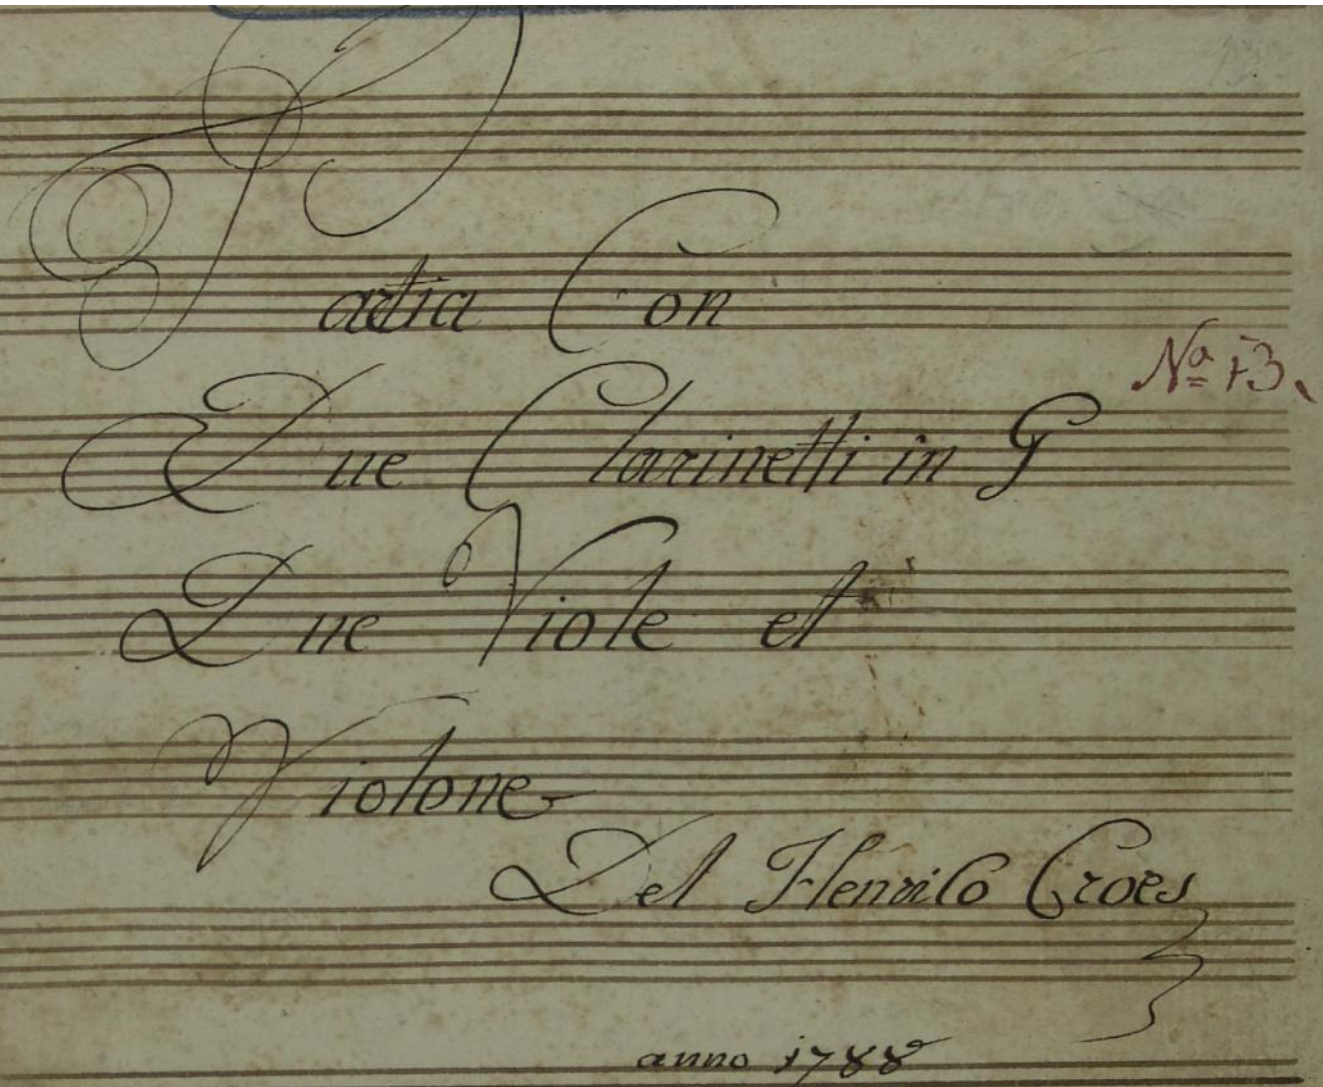 Partia Con
No 13.
Due Clarinetti in G
Due Viole et
Violone
Del Henrico Croes
anno 1788